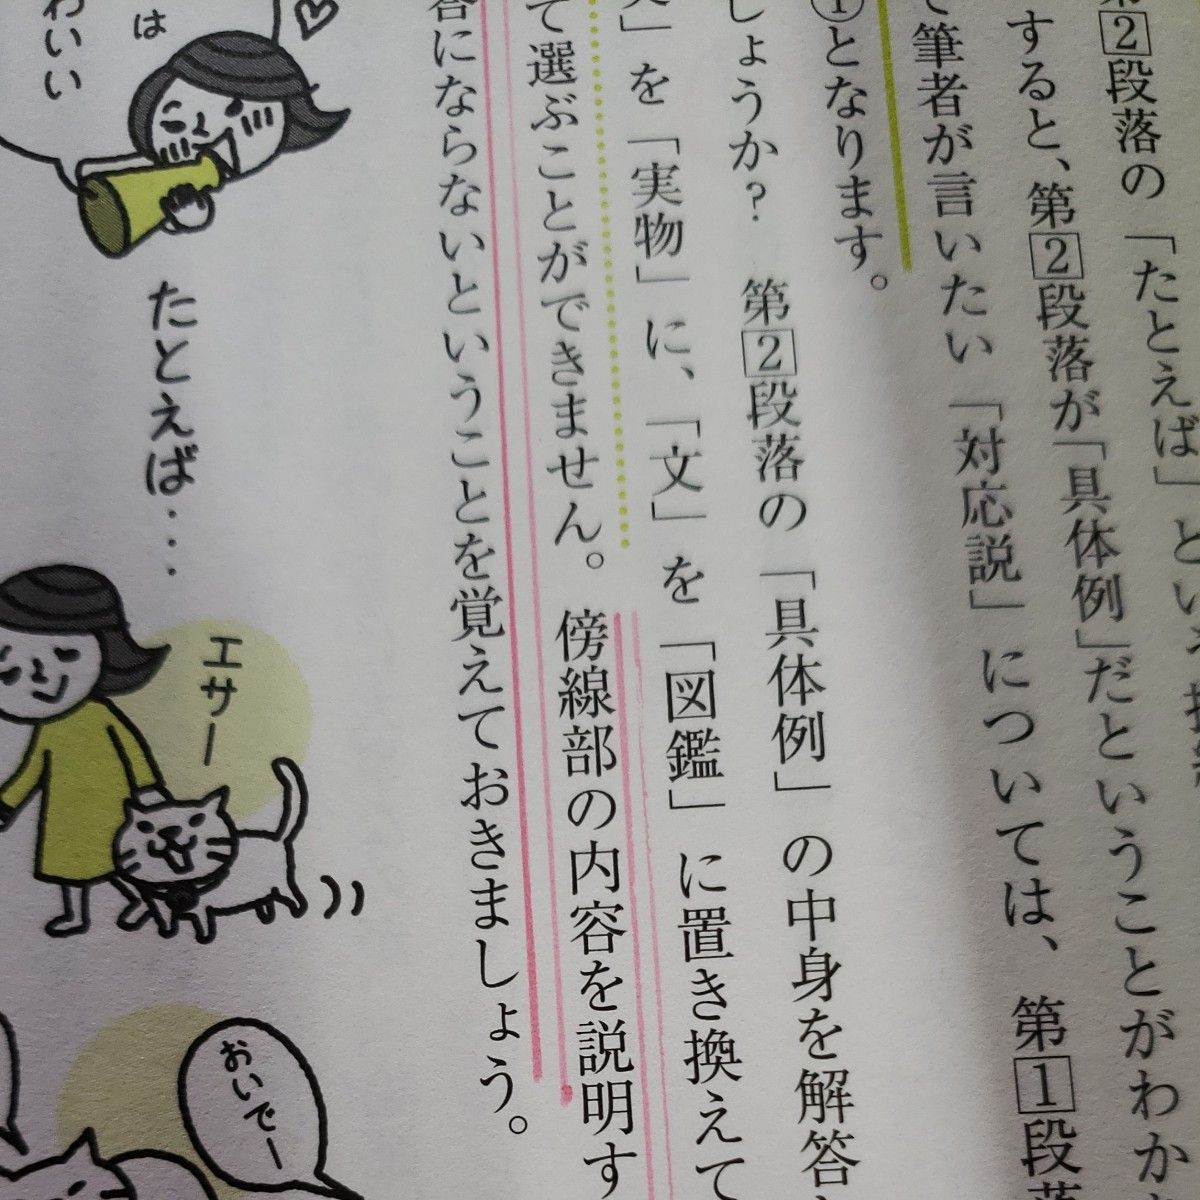 第2段落の「たとえば」とい
すると、第2段落が「具体例」だということがわか
て筆者が言いたい「対応説」については、第1段落
①となります。
しょうか？　第2段落の「具体例」の中身を解答
」を「実物」に、「文」を「図鑑」に置き換えて
て選ぶことができません。傍線部の内容を説明す
答にならないということを覚えておきましょう。
は
わいい
たとえば・・・
エサー
おいでー